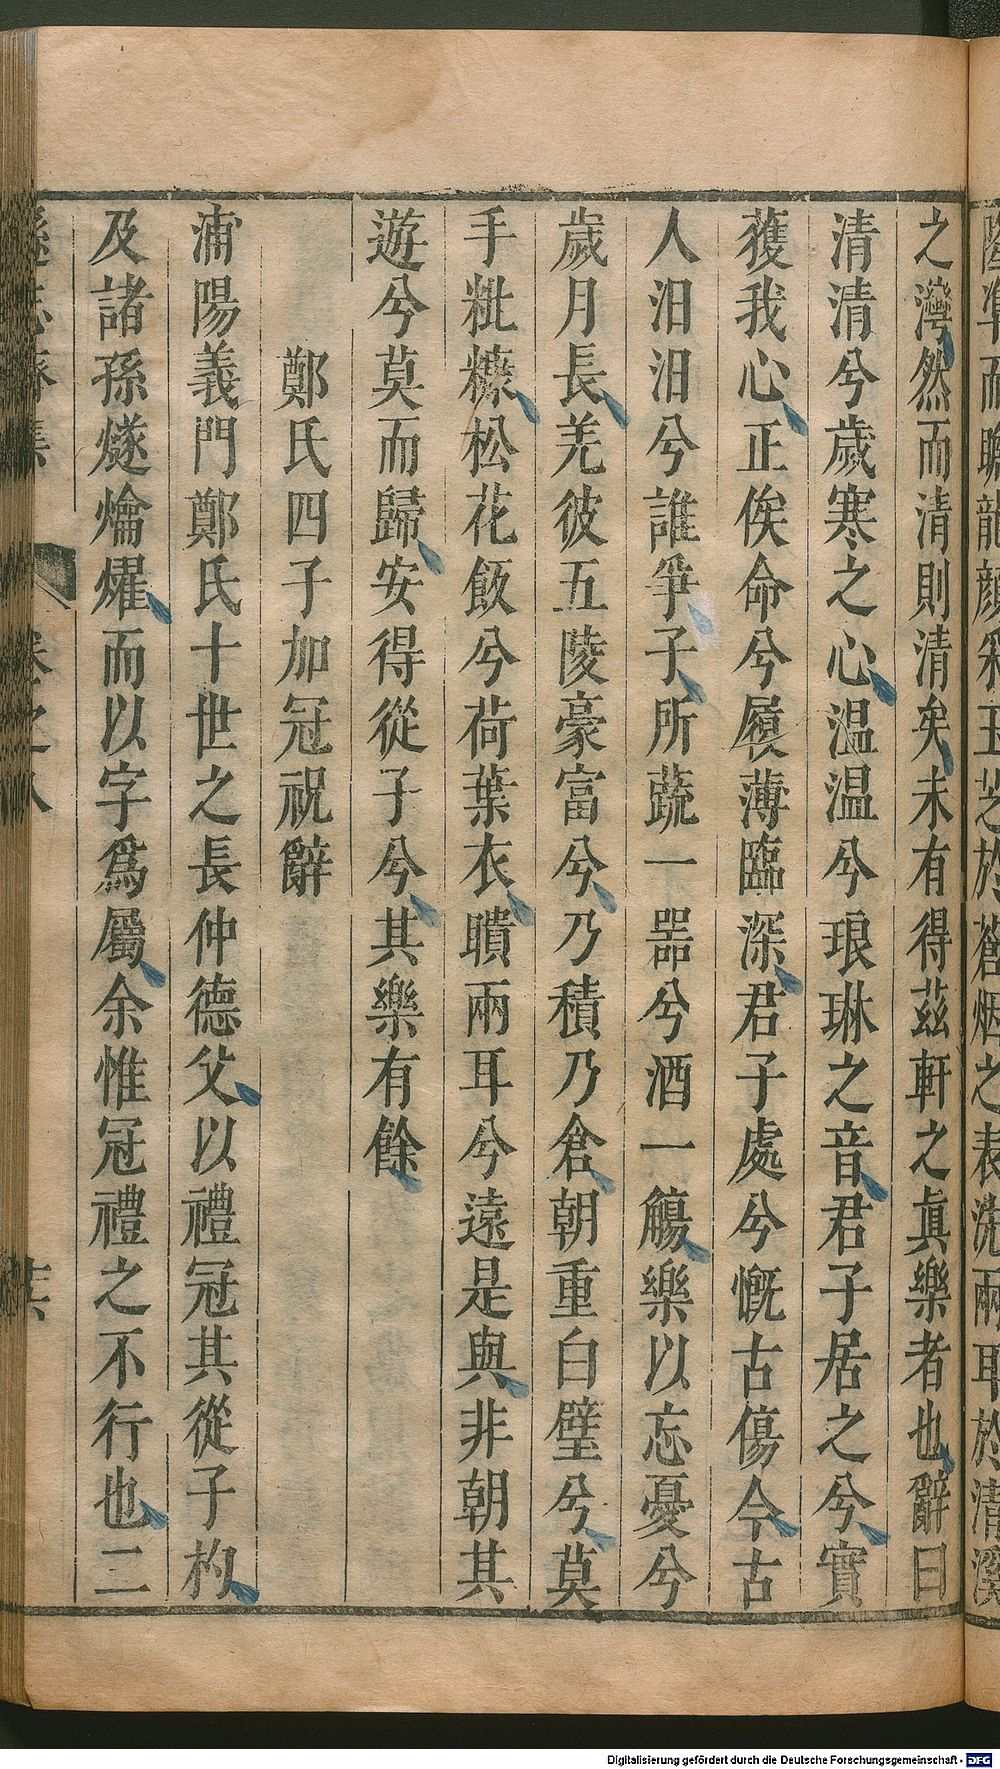 隆準而龍顔采玉芝於蒼烟之表洗兩耳於清溪
之灣然而清則清矣未有得茲軒之眞樂者也辭曰
清清兮歲寒之心温温兮琅琳之音君子居之兮實
獲我心正俟命兮履薄臨深君子處兮慨古傷今古
人汨汨兮誰爭子所蔬一器兮酒一觴樂以忘憂兮
歲月長羌彼五陵豪富兮乃積乃倉朝重白璧兮莫
手粃糠松花飯兮荷葉衣聵兩耳兮遠是與非朝其
遊兮莫而歸安得從子兮其樂有餘
鄭氏四子加冠祝辭
浦陽義門鄭氏十世之長仲德父以禮冠其從子杓
及諸孫燧爚燿而以字爲屬余惟冠禮之不行也二
遜志齋集 卷之八
Digitalisierung gefördert durch die Deutsche Forschungsgemeinschaft - DFG